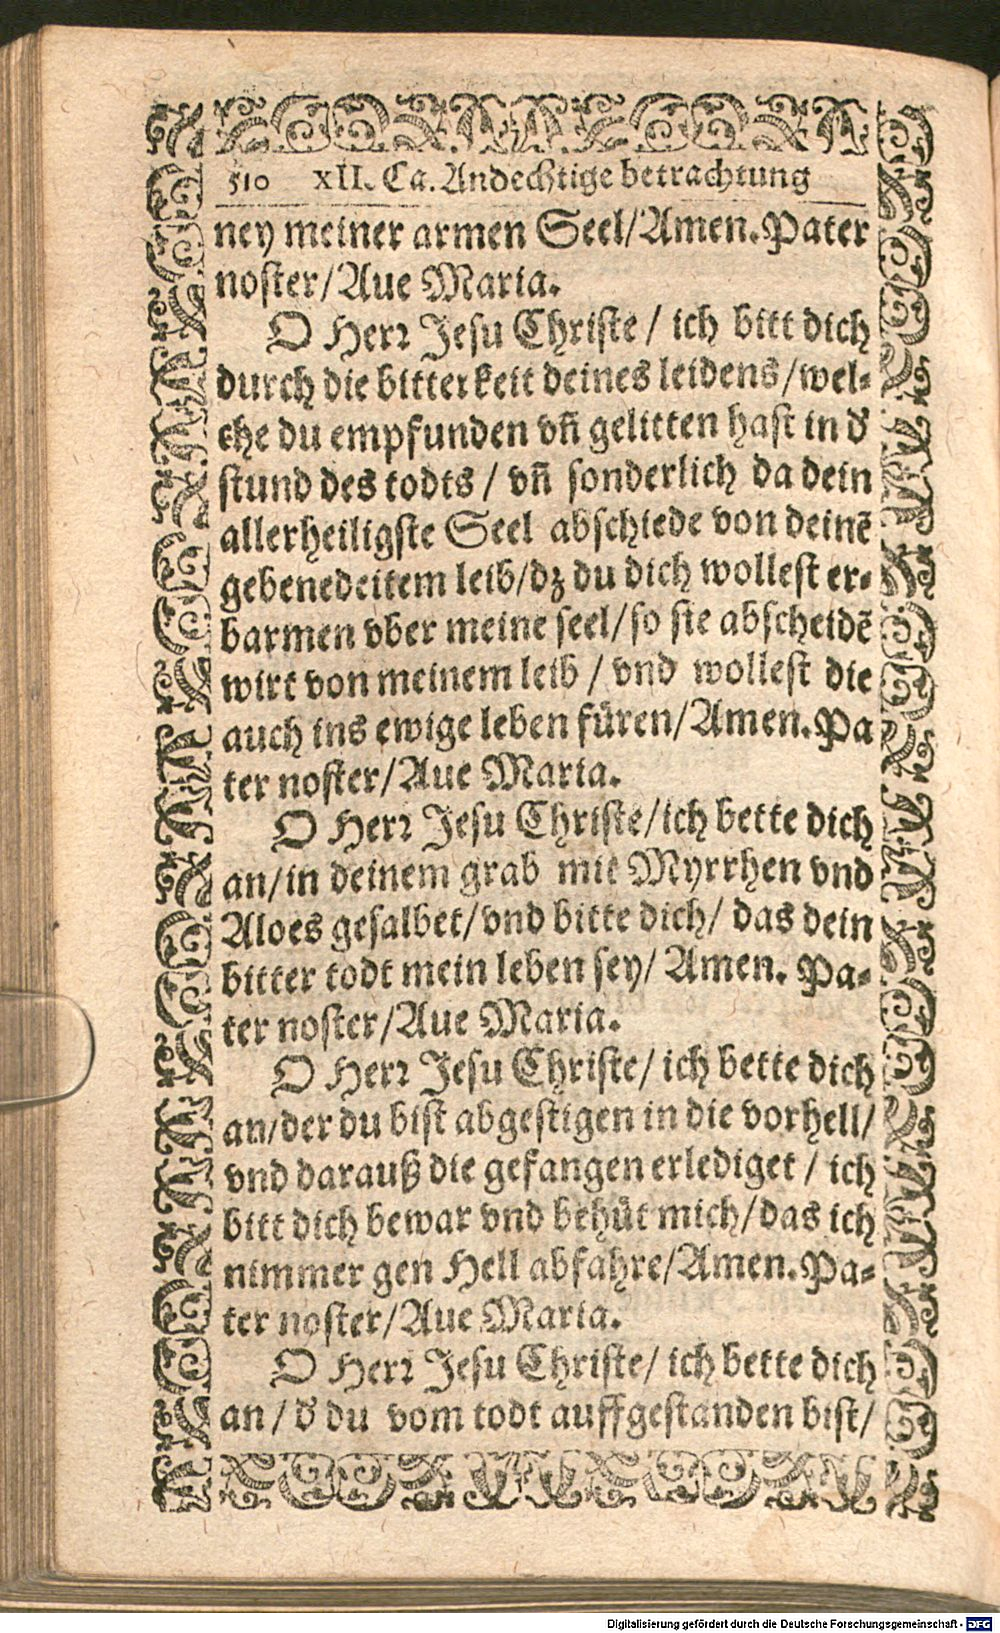 510 XII. Ca. Andechtige betrachtung
ney meiner armen Seel/Amen. Pater
noster/Aue Maria.
O Herr Jesu Christe / ich bitt dich
durch die bitterkeit deines leidens/wel-
che du empfunden vñ gelitten hast in d'
stund des todts / vñ sonderlich da dein
allerheiligste Seel abschiede von deinē
gebenedeitem leib/dz du dich wollest er-
barmen vber meine seel/so sie abscheidē
wirt von meinem leib / vnd wollest die
auch ins ewige leben füren/Amen. Pa
ter noster/Aue Maria.
O Herr Jesu Christe/ich bette dich
an/in deinem grab mit Myrrhen vnd
Aloes gesalbet/vnd bitte dich/ das dein
bitter todt mein leben sey/ Amen. Pa-
ter noster/Aue Maria.
O Herr Jesu Christe/ ich bette dich
an/der du bist abgestigen in die vorhell/
vnd darauß die gefangen erlediget / ich
bitt dich bewar vnd behüt mich/das ich
nimmer gen Hell abfahre/Amen. Pa-
ter noster/Aue Maria.
O Herr Jesu Christe/ ich bette dich
an / d' du vom todt auffgestanden bist/
Digitalisierung gefördert durch die Deutsche Forschungsgemeinschaft - DFG